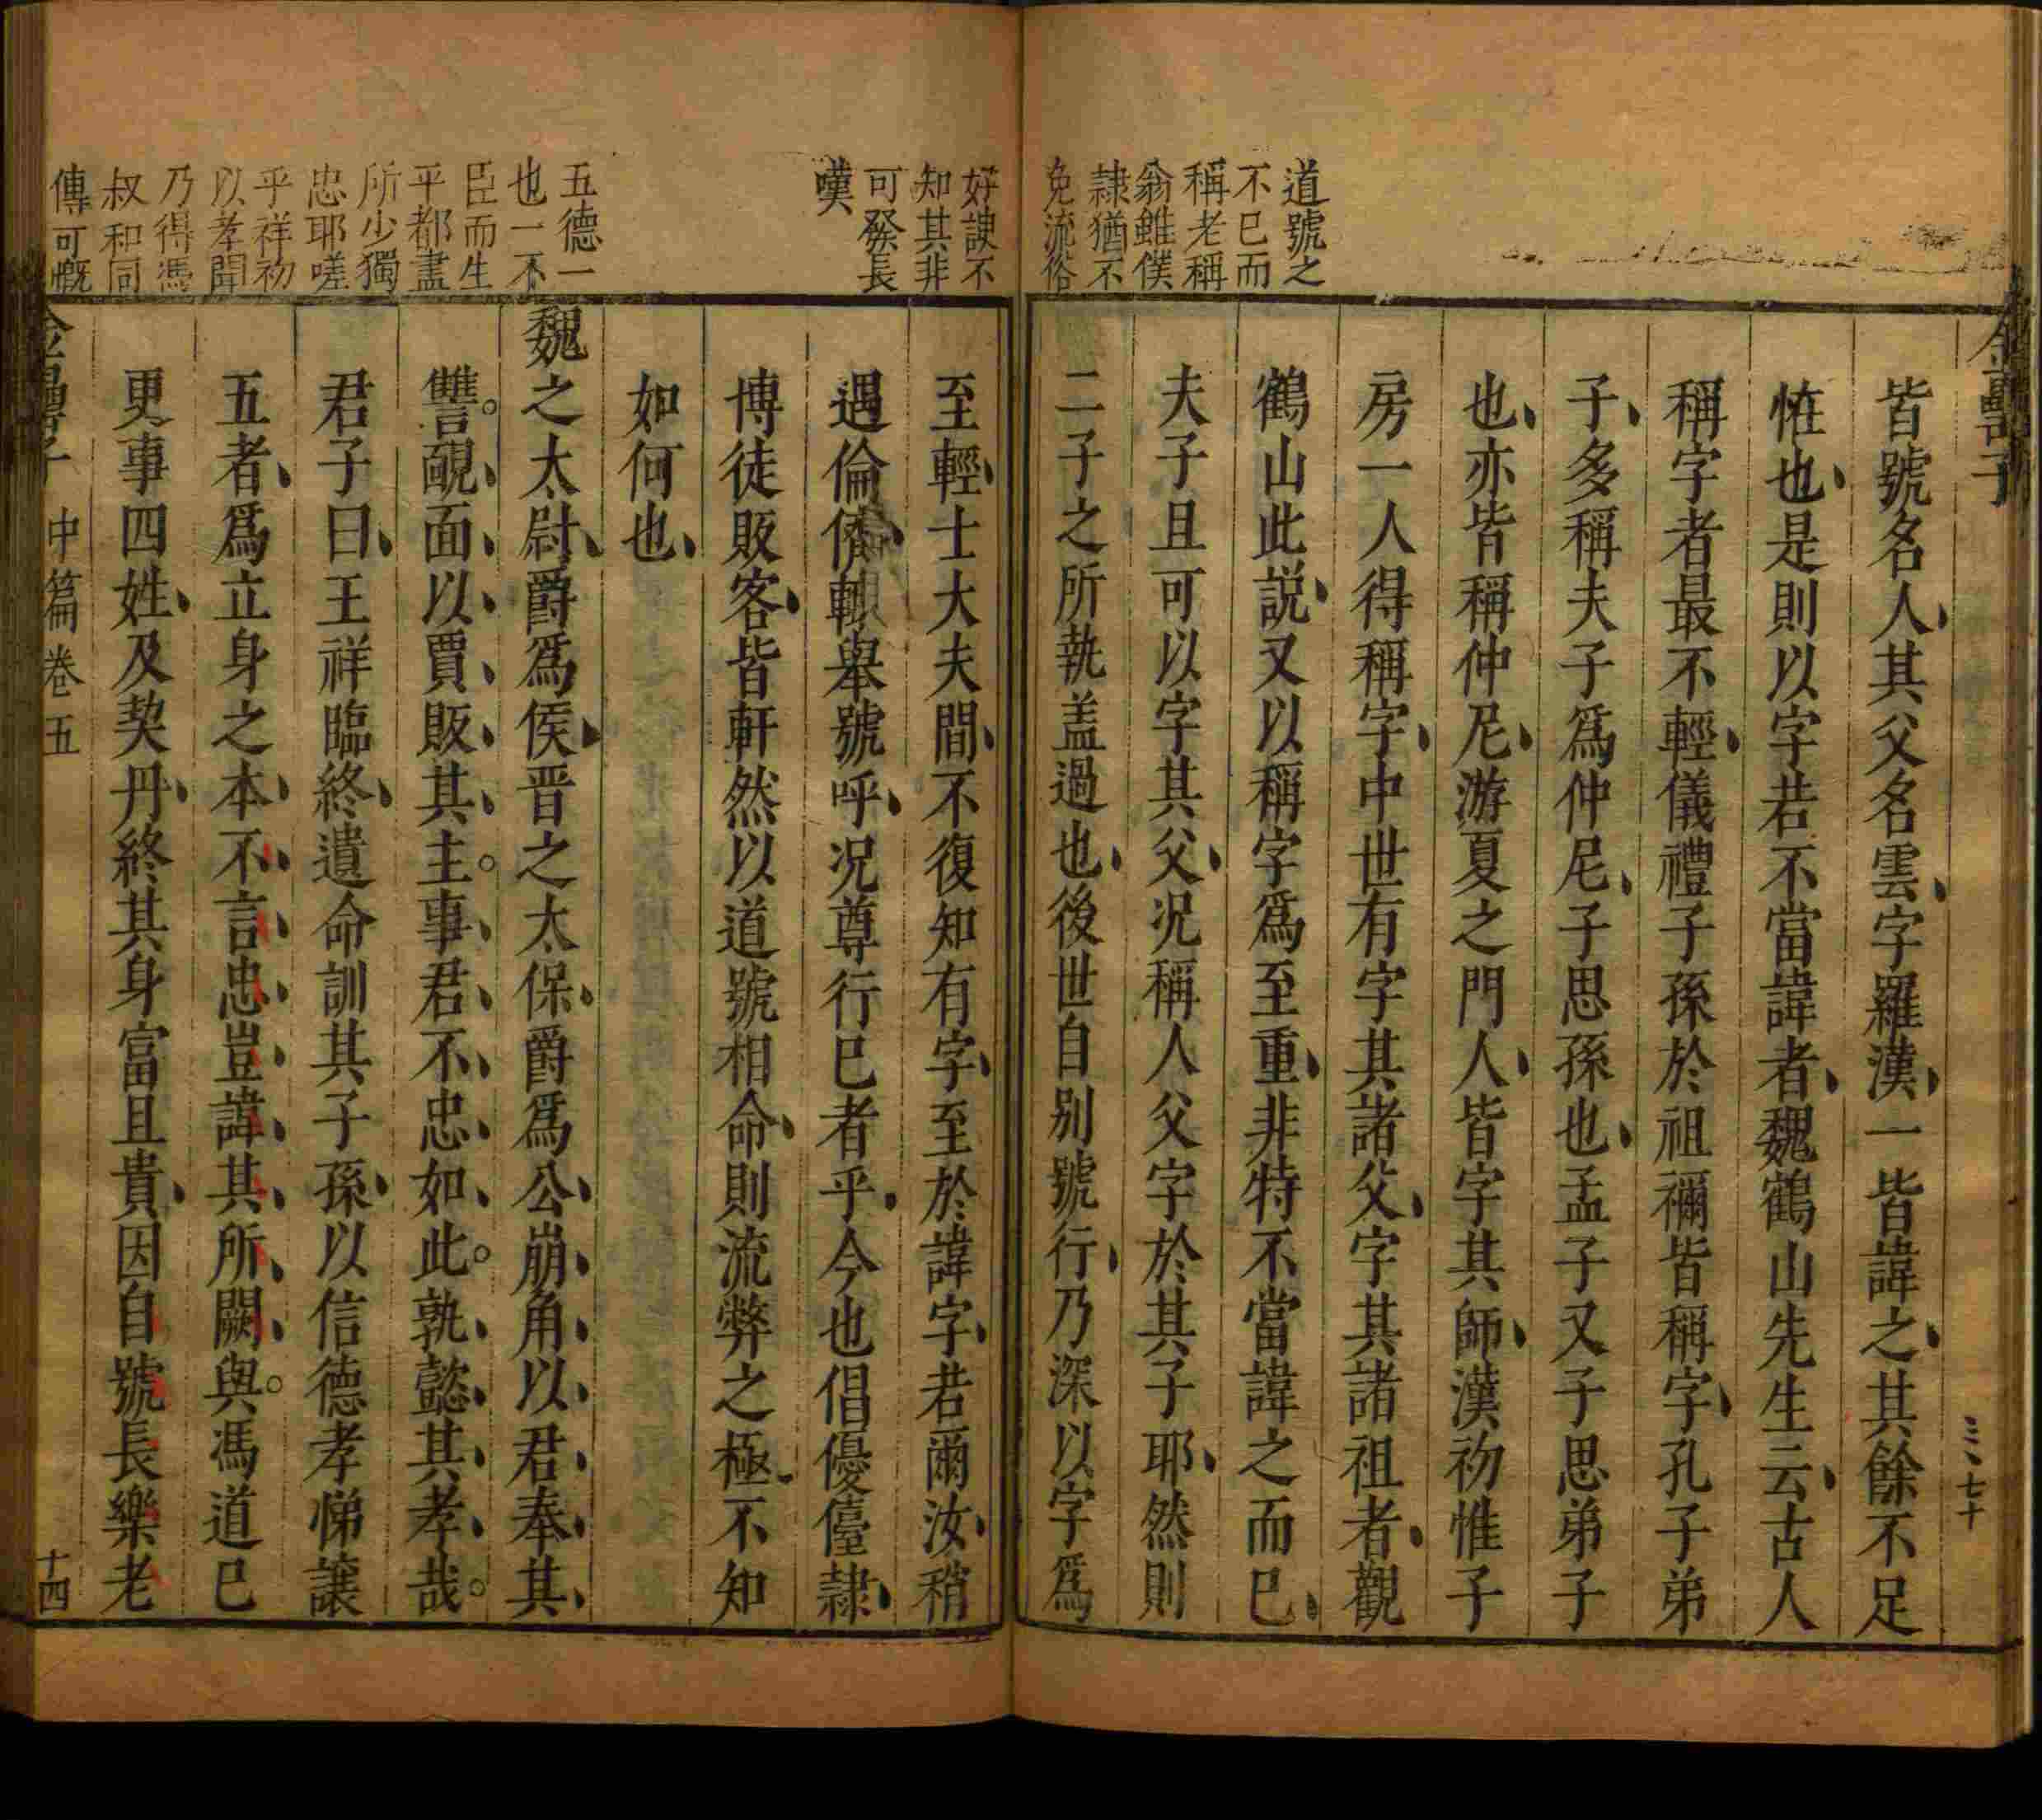 道號之
不已而
稱老稱
翁雖僕
隷猶不
免流俗
皆號名人其父名雲字羅漢一皆諱之其餘不足
恠也是則以字若不當諱者魏鶴山先生云古人
稱字者最不輕儀禮子孫於祖禰皆稱字孔子弟
子多稱夫子爲仲尼子思孫也孟子又子思弟子
也亦皆稱仲尼游夏之門人皆字其師漢初惟子
房一人得稱字中世有字其諸父字其諸祖者觀
鶴山此説又以稱字爲至重非特不當諱之而已
夫子且可以字其父况稱人父字於其子耶然則
二子之所執盖過也後世自别號行乃深以字爲
好諛不
知其非
可發長
嘆
五德一
也一不
臣而生
平都盡
所少獨
忠耶嗟
乎祥初
以孝聞
乃得馮
叔和同
傳可慨
至輕士大夫間不復知有字至於諱字若爾汝稍
遇倫儕輙舉號呼况尊行已者乎今也倡優儓隷
博徒販客皆軒然以道號相命則流弊之極不知
如何也
魏之太尉爵爲侯晋之太保爵爲公崩角以君奉其
讐覥面以賈販其主事君不忠如此孰懿其孝哉
君子曰王祥臨終遺命訓其子孫以信德孝悌讓
五者爲立身之本不言忠豈諱其所闕與馮道已
更事四姓及契丹終其身富且貴因自號長樂老
中篇卷五
十四